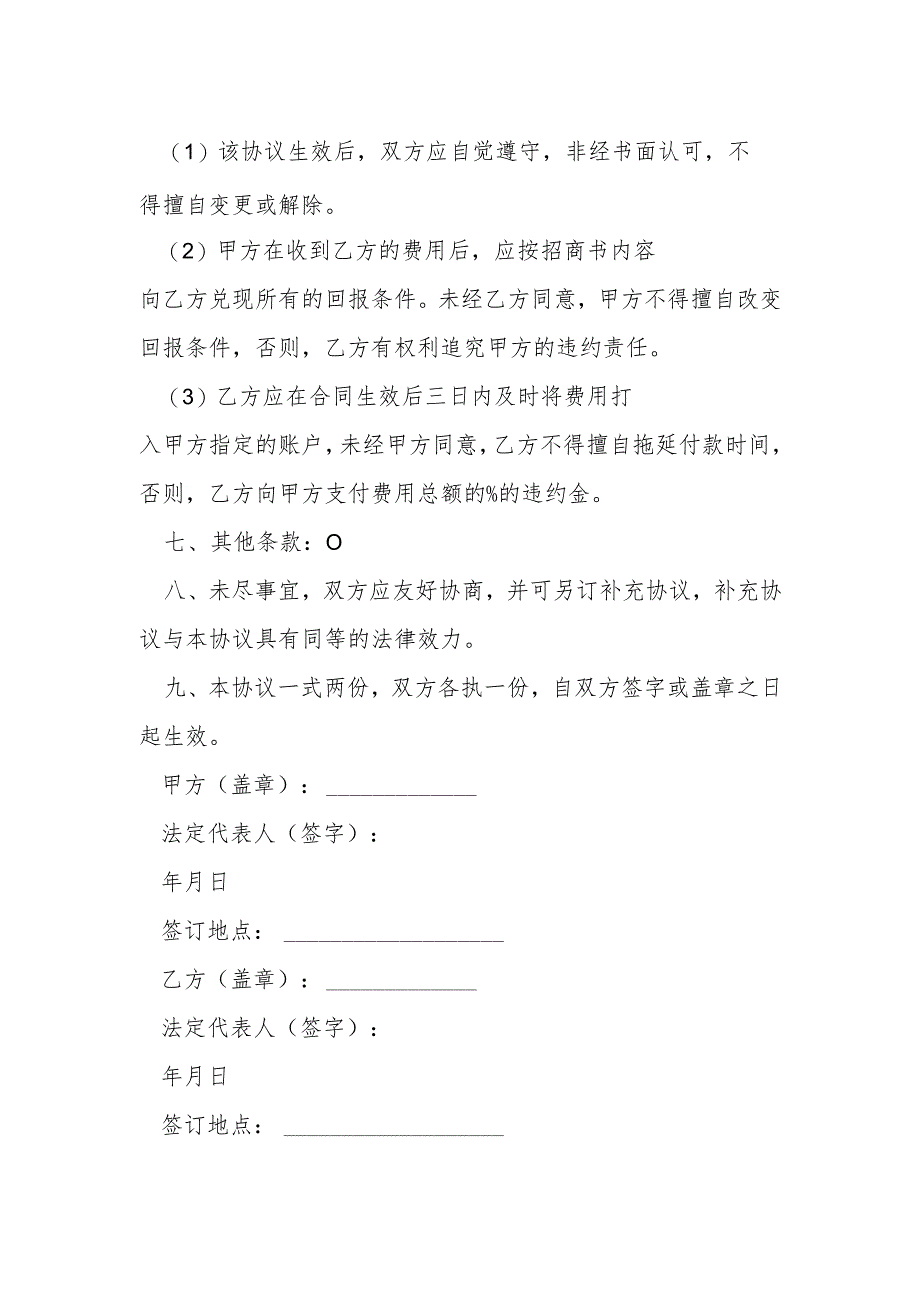 （1）该协议生效后，双方应自觉遵守，非经书面认可，不
得擅自变更或解除。
（2）甲方在收到乙方的费用后，应按招商书内容
向乙方兑现所有的回报条件。未经乙方同意，甲方不得擅自改变
回报条件，否则，乙方有权利追究甲方的违约责任。
（3）乙方应在合同生效后三日内及时将费用打
入甲方指定的账户，未经甲方同意，乙方不得擅自拖延付款时间，
否则，乙方向甲方支付费用总额的%的违约金。
七、其他条款：O
八、未尽事宜，双方应友好协商，并可另订补充协议，补充协
议与本协议具有同等的法律效力。
九、本协议一式两份，双方各执一份，自双方签字或盖章之日
起生效。
甲方（盖章）：_____________
法定代表人（签字）：
年月日
签订地点：___________________
乙方（盖章）：_____________
法定代表人（签字）：
年月日
签订地点：___________________